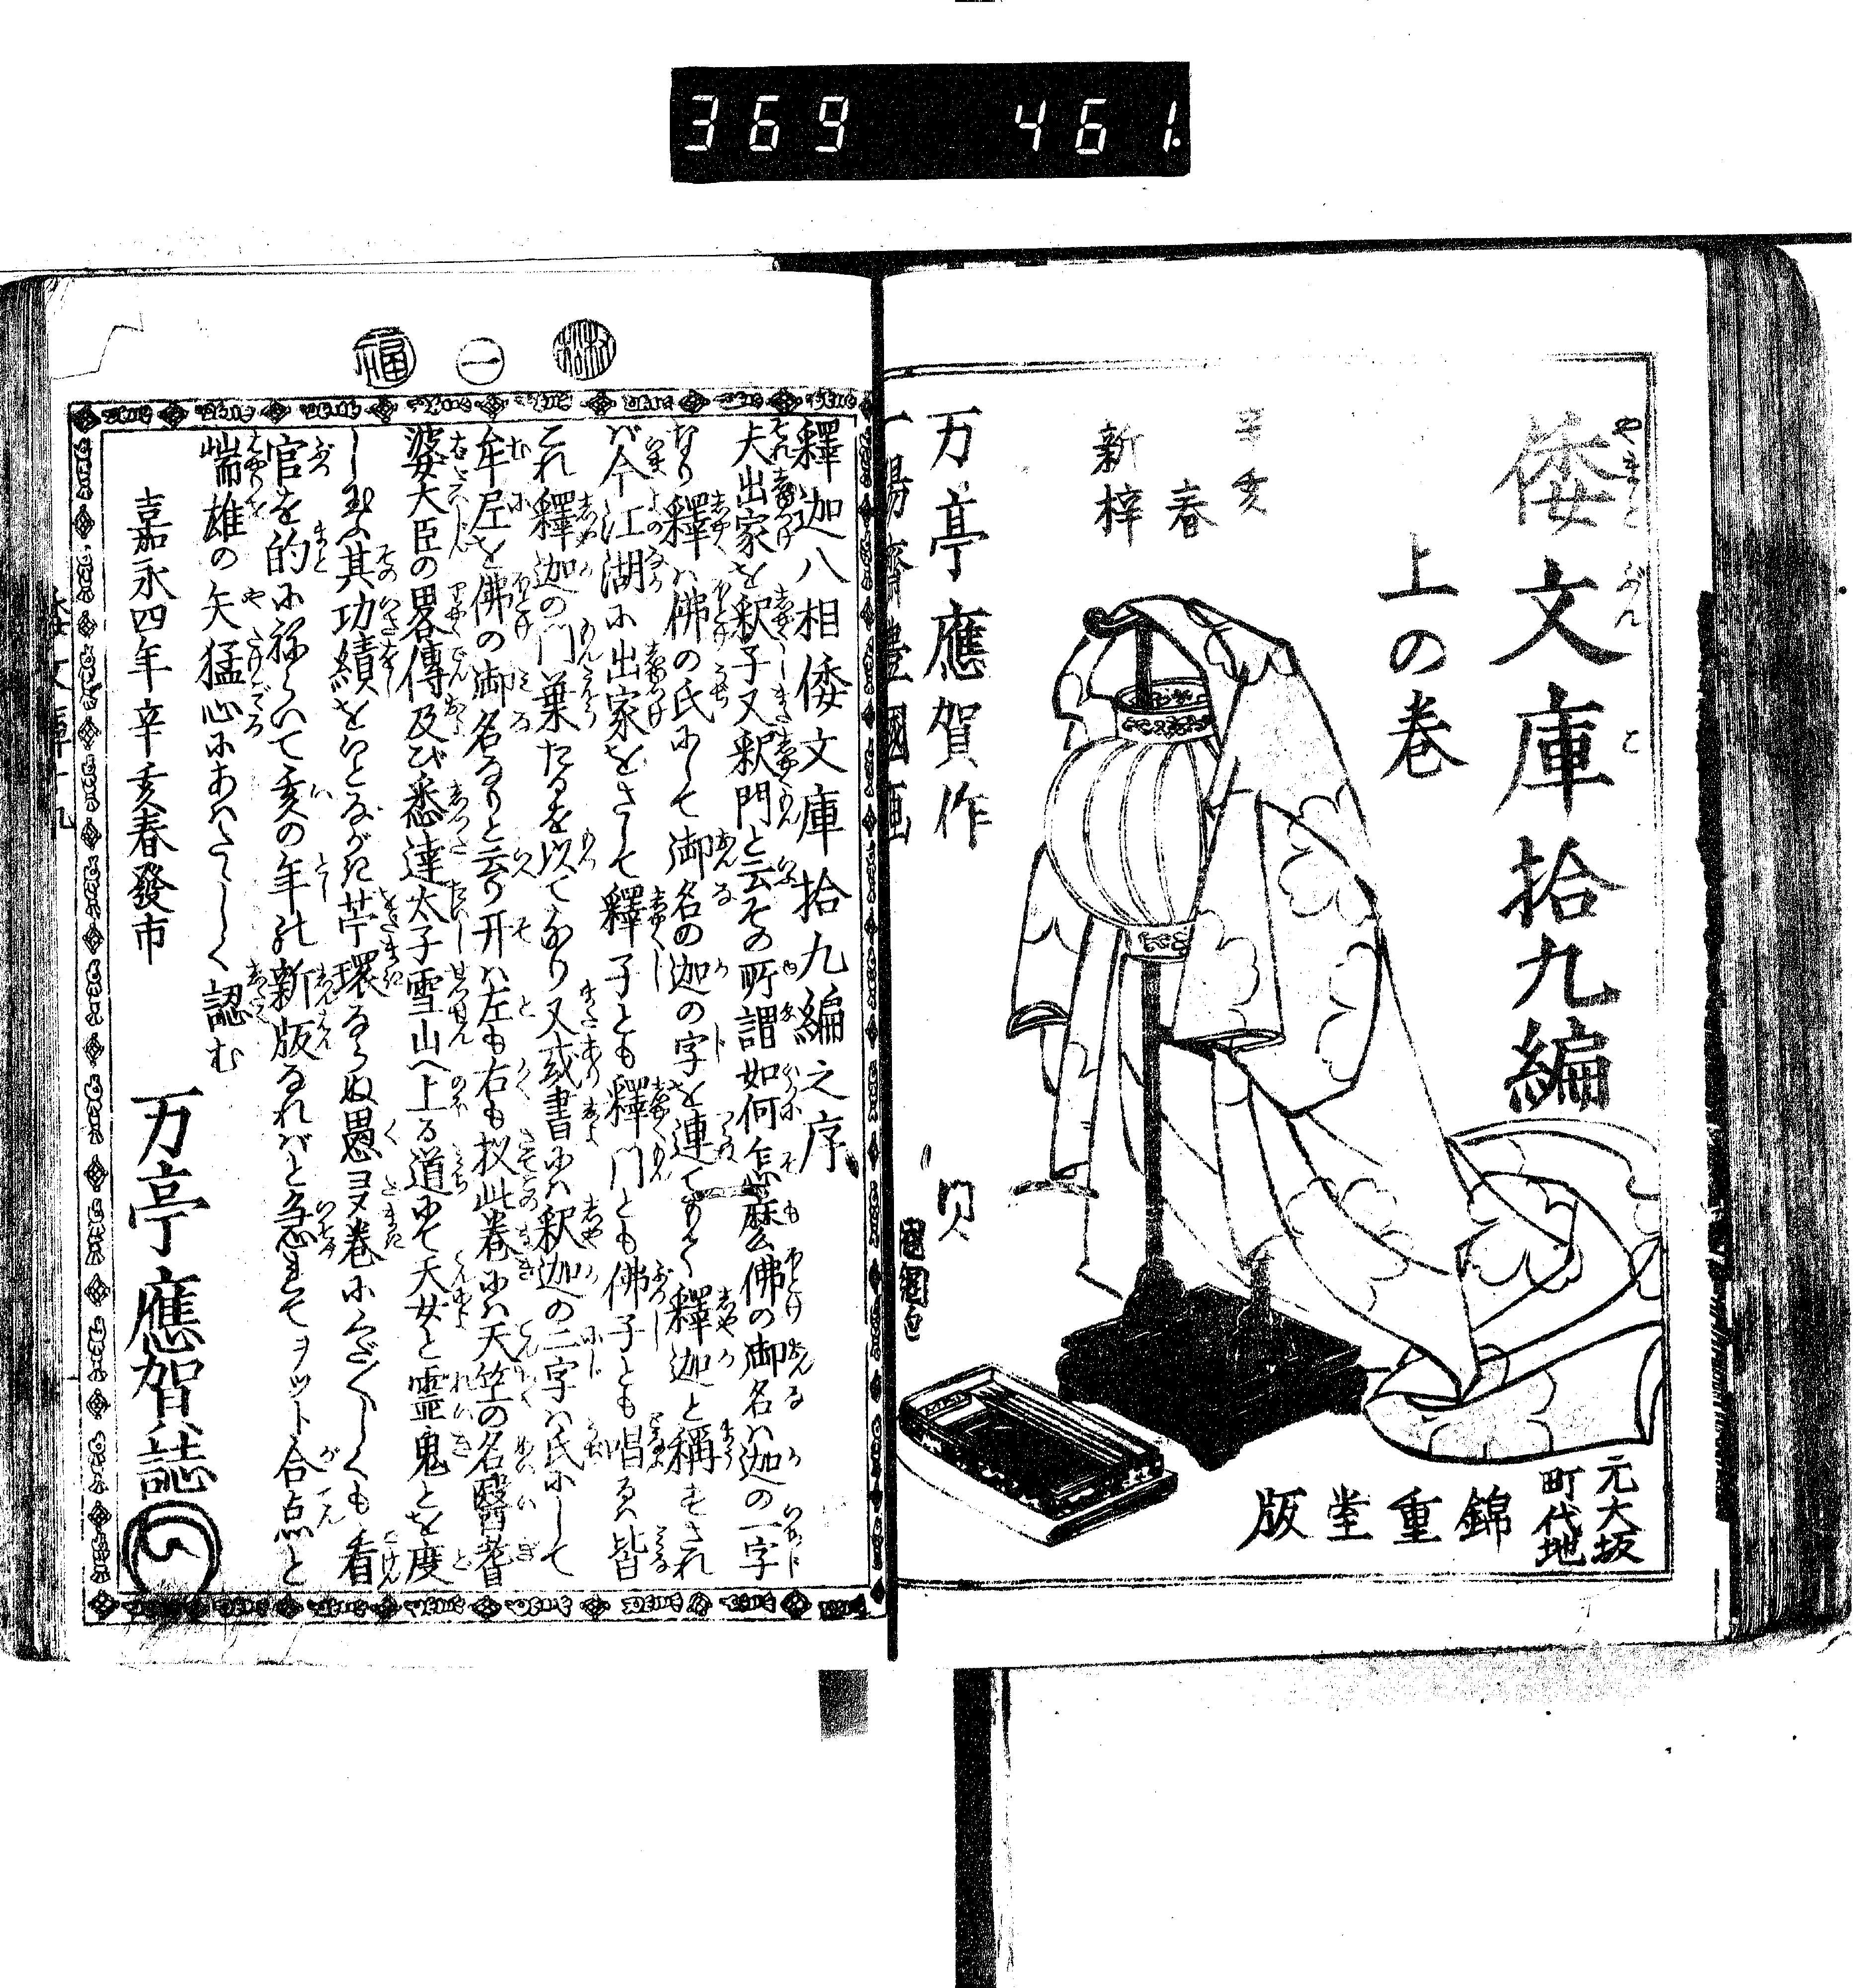 369 461.
倭文庫拾九編
やまとぶんこ
上の巻
辛亥
春
新梓
万亭應賀作
一陽齋豊國画
元大坂
町代地
錦重堂版
福 一
釋迦八相倭文庫拾九編之序
夫出家を釈子又釈門と云その所謂如何怎麼佛の御名ハ迦の一字
なり釋ハ佛の氏にして御名の迦の字を連てかく釋迦と稱せされ
バ今江湖に出家をさして釋子とも釋門とも佛子とも唱るハ皆
これ釋迦の門葉たるを以てなり又或書にハ釈迦の二字ハ氏にして
牟尼を佛の御名なりと云り开ハ左も右も扨此巻にハ天竺の名醫耆
婆大臣の畧傳及び悉達太子雪山へ上る道にて天女と霊鬼とを度
し玉ふ其功績をいとながき苧環ならぬ愚ヨヌ巻にくだ〱しくも看
官を的にねらいて亥の年の新版なれバと急まてヲット合点と
喘雄の矢猛心にあハたゝしく認む
嘉永四年辛亥春發市
万亭應賀誌